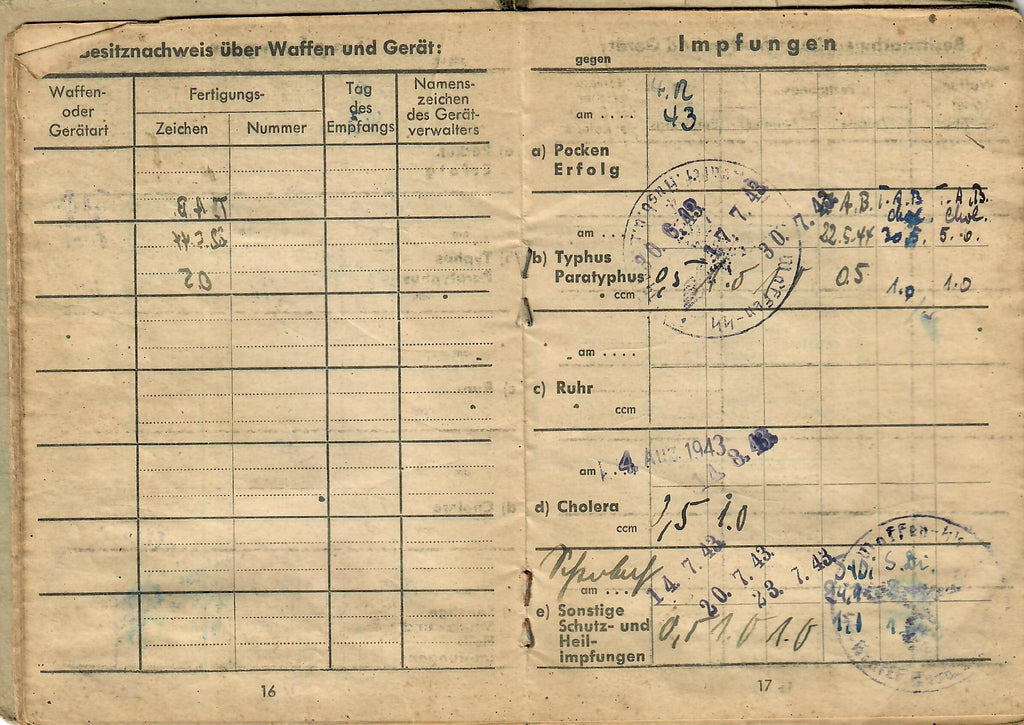 Besitznachweis über Waffen und Gerät:
Waffen-
oder
Gerätart
Fertigungs-
Zeichen
Nummer
Tag
des
Empfangs
Namens-
zeichen
des Gerät-
verwalters
16
Impfungen
gegen
am . . . .
43
a) Pocken
Erfolg
T. A. B. T. A. B.
chol. chol.
am . . . .
20. 6. 43 7. 43 30. 7. 43 22.5.44
b) Typhus
Paratyphus
ccm
0.5 1.0 1.0
am . . . .
c) Ruhr
ccm
am
4. Aug. 1943 14. 8. 43
d) Cholera
ccm
0,5 1.0
am . . . .
14. 7. 43 20. 7. 43 23. 7. 43
e) Sonstige
Schutz- und
Heil-
impfungen
0,5 1.0 1.0
Waffen-SS
Waffen-SS
17